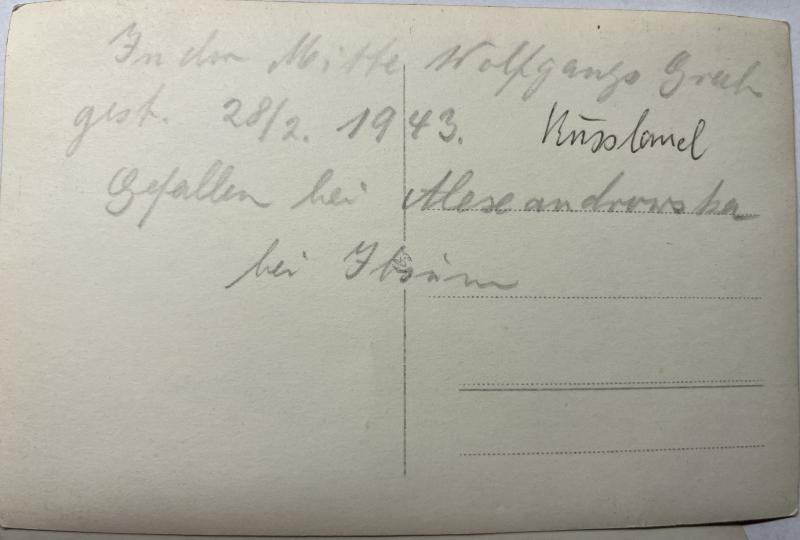 In der Mitte Wolfgangs Grab
gest. 28/2. 1943. Russland
Gefallen bei Alexandrowska
bei Isüm